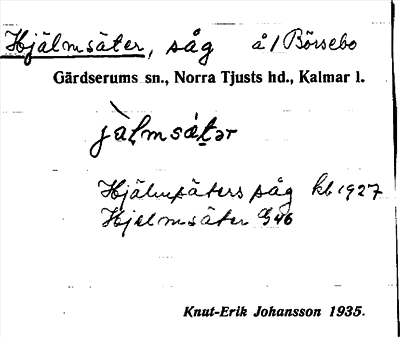 Hjälmsäter, såg å / Börsebo
Gärdserums sn., Norra Tjusts hd., Kalmar l.
jàlmsátər
Hjälmsäters såg kb 1927
Hjelmsäter G 46
Knut-Erik Johansson 1935.